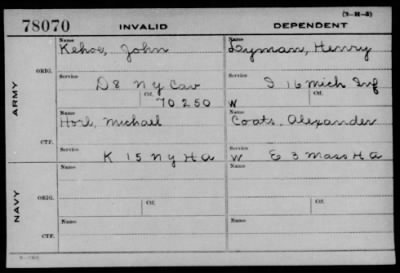 (3-H-3)
78070 INVALID DEPENDENT
Name Name
Kehoe, John Lyman, Henry
ARMY
ORIG.
Service Service
D 8 N Y Cav I 16 Mich Inf
Ctf. Ctf.
70250 W
Name Name
Horl, Michael Coats, Alexander
CTF.
Service Service
K 15 N Y H A W E 3 Mass H A
NAVY
Name Name
ORIG.
Ctf. Ctf.
Name Name
CTF.